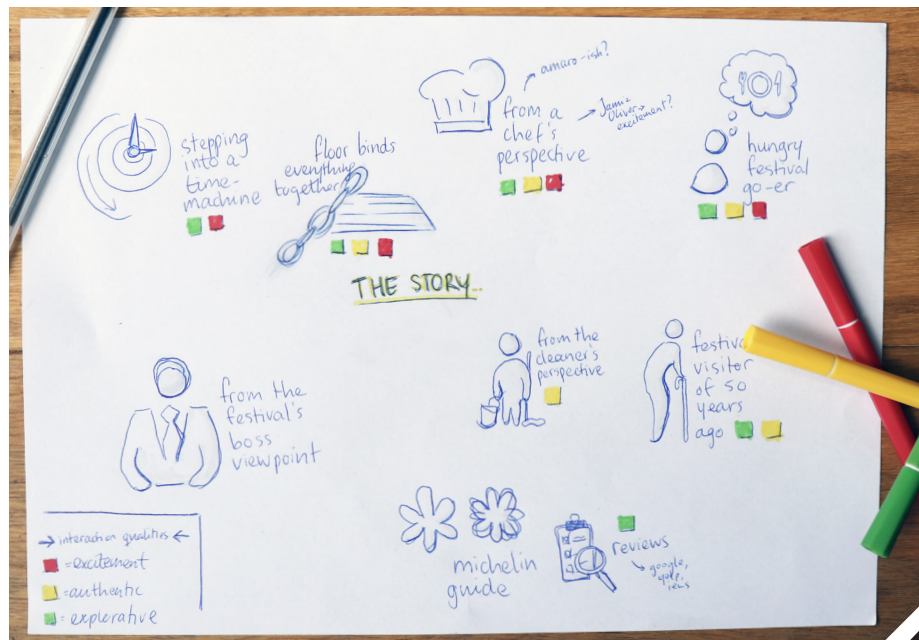 stepping
into a
time-
machine
floor binds
everything
together
amaro-ish?
from a
chef's
perspective
Jamie
Oliver→
excitement?
hungry
festival
go-er
THE STORY...
from the
festival's
boss
viewpoint
from the
cleaner's
perspective
visitor
of 50
years
ago
michelin
guide
reviews
google,
→ interaction qualities ←
= excitement
= authentic
= explorative